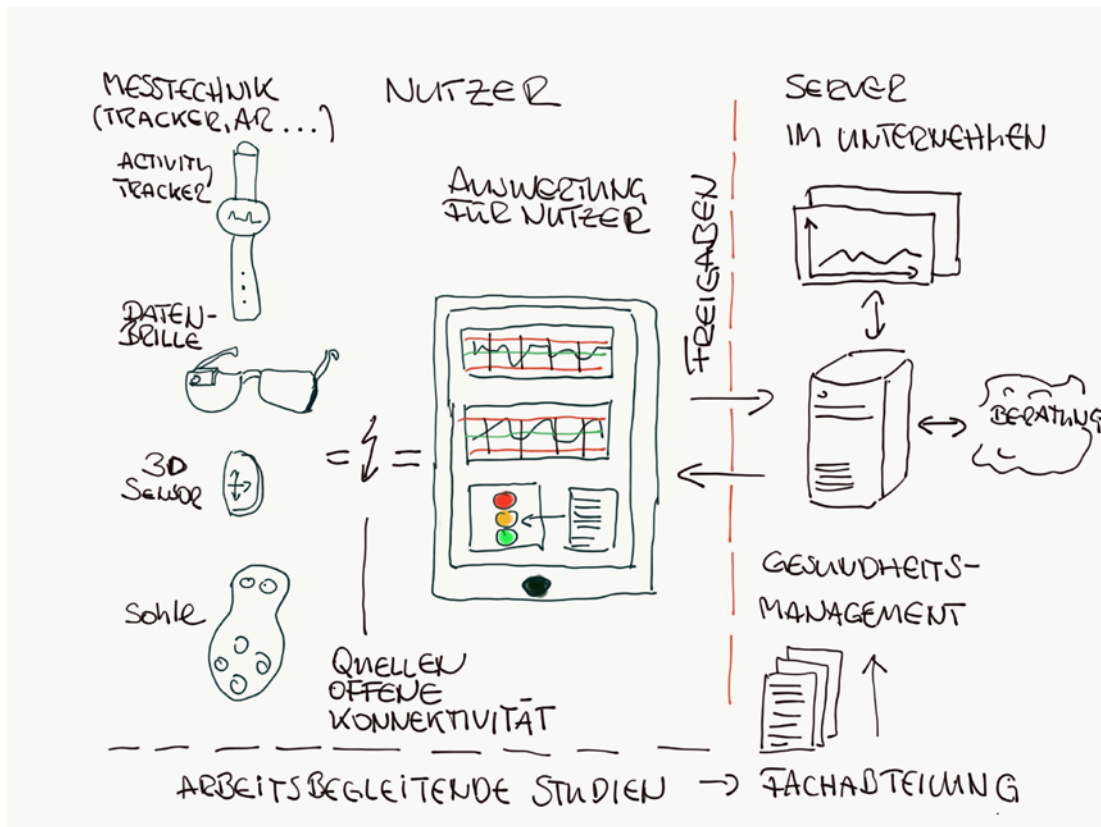 MESSTECHNIK
(TRACKER, AR ...)
ACTIVITY
TRACKER
DATEN-
BRILLE
3D
SENSOR
Sohle
NUTZER
AUSWERTUNG
FÜR NUTZER
QUELLEN
OFFENE
KONNEKTIVITÄT
FREIGABEN
SERVER
IM UNTERNEHMEN
BERATUNG
GESUNDHEITS-
MANAGEMENT
ARBEITSBEGLEITENDE STUDIEN → FACHABTEILUNG